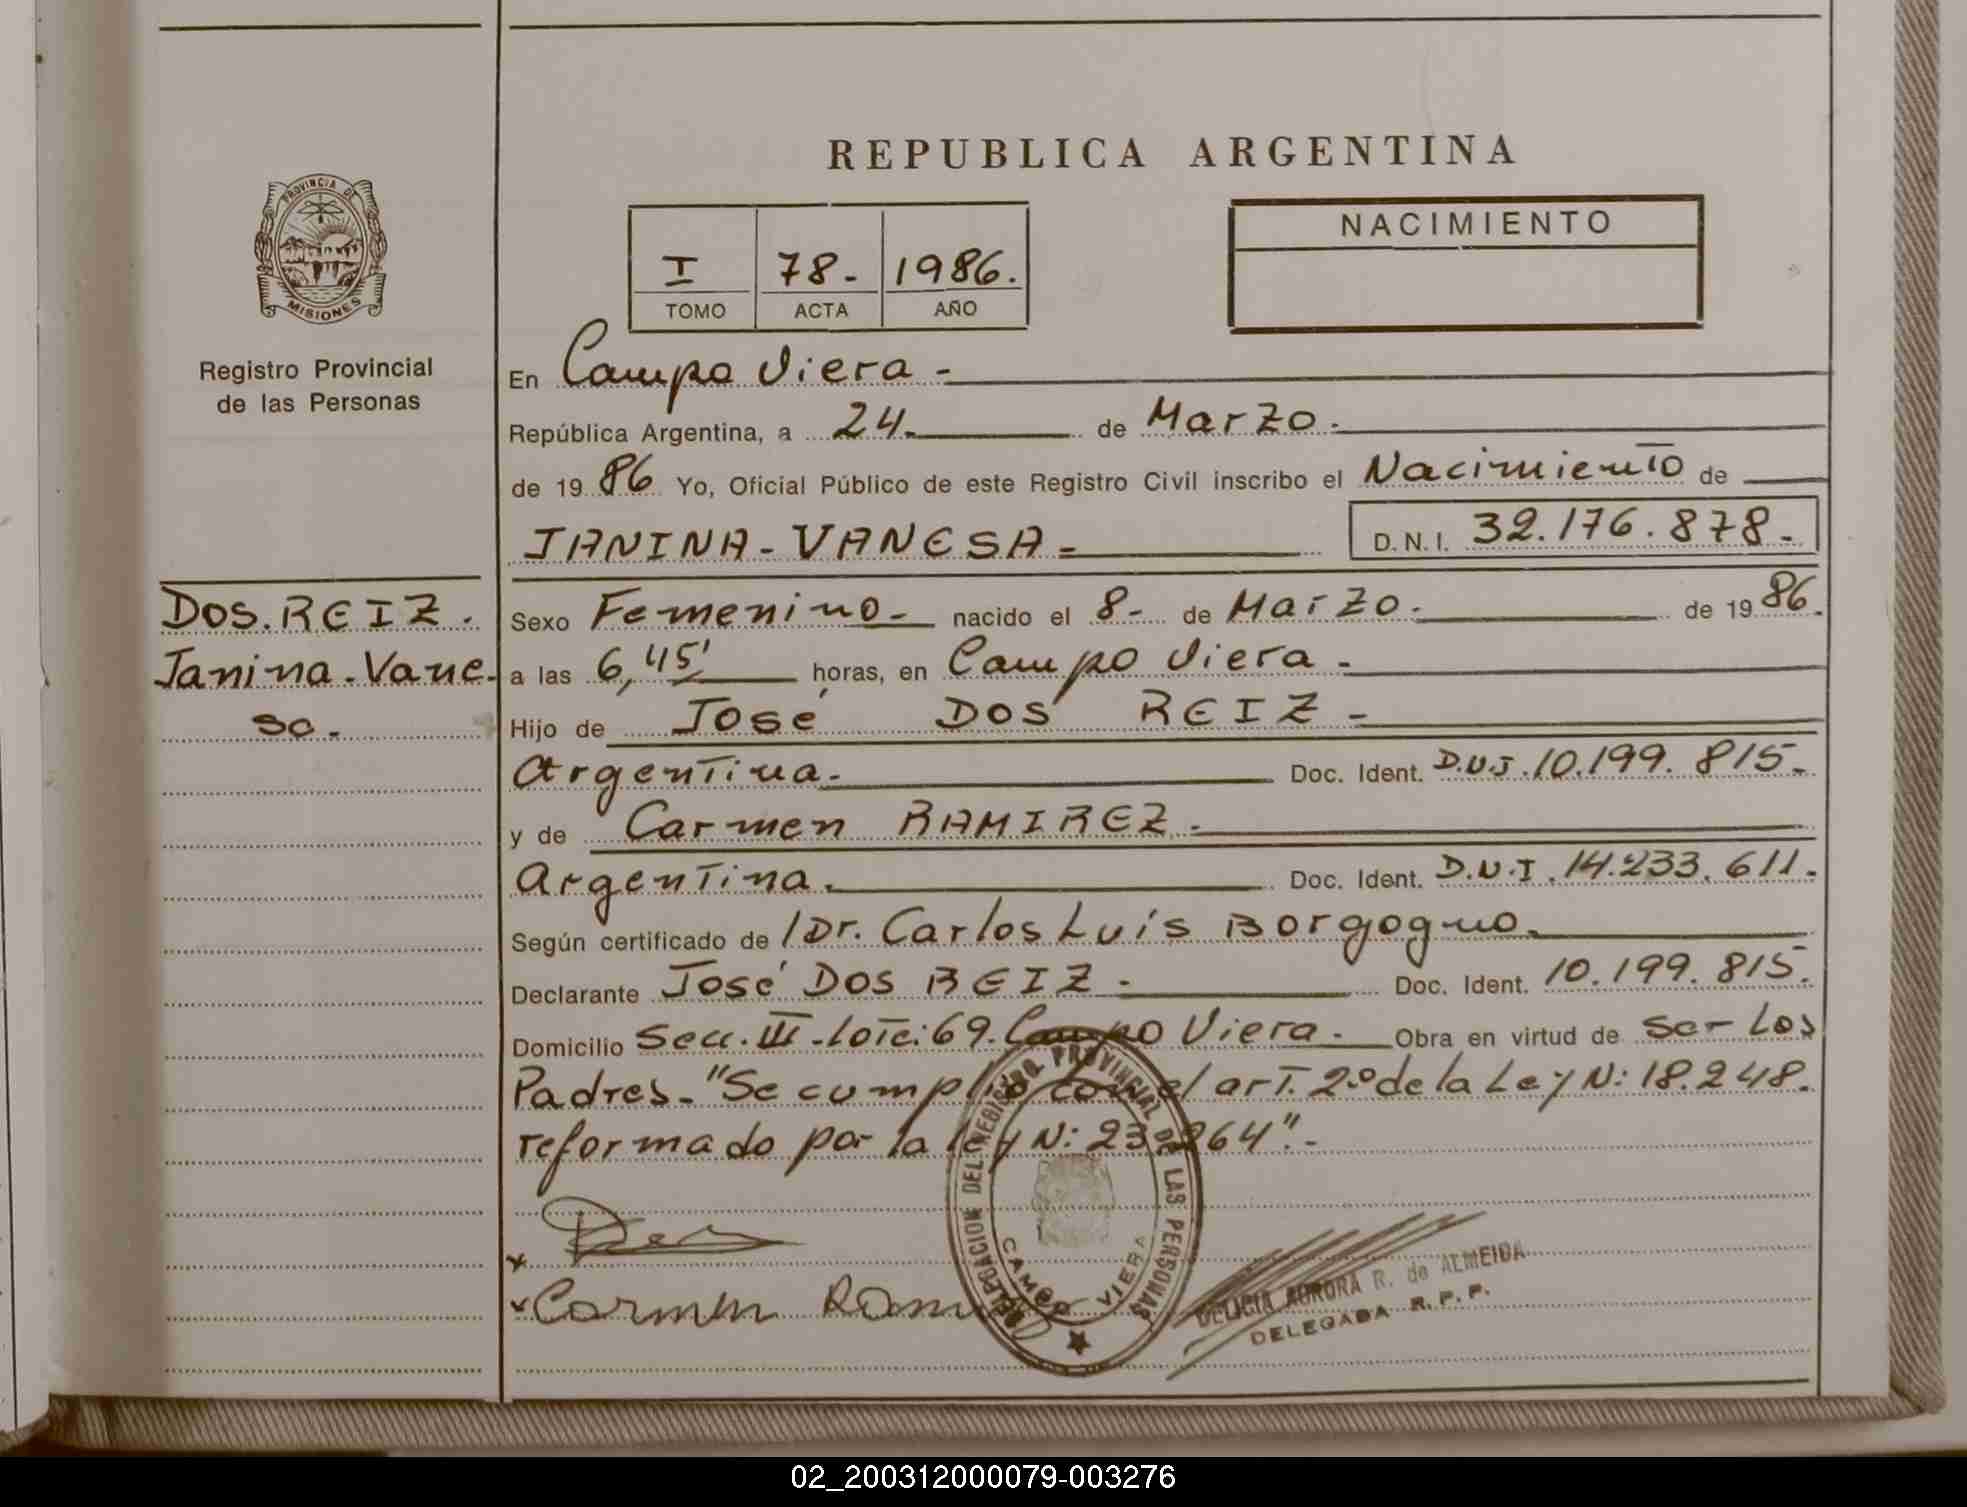 REPUBLICA ARGENTINA
PROVINCIA DE
MISIONES
Registro Provincial
de las Personas
I 78- 1986.
TOMO ACTA AÑO
NACIMIENTO
En Campo Viera -
República Argentina, a 24. de Marzo.
de 19 86 Yo, Oficial Público de este Registro Civil inscribo el Nacimiento de
JANINA-VANESA- D.N.I. 32.176.878-
DOS.REIZ.
Janina-Vane-
sa.
Sexo Femenino- nacido el 8- de Marzo. de 19 86.
a las 6,45' horas, en Campo Viera -
Hijo de José DOS REIZ -
Argentina. Doc. Ident. D.N.I. 10.199.815-
y de Carmen RAMIREZ.
Argentina. Doc. Ident. D.N.I. 14.233.611.
Según certificado de /Dr. Carlos Luís Borgogno.
Declarante José DOS REIZ. Doc. Ident. 10.199.815.
Domicilio Secc. III-Lote:69. Campo Viera. Obra en virtud de ser los
Padres-"Se cumplió con el art. 2º de la Ley N: 18.248.
reformado por la ley N: 23.264".-
DELEGACION DEL REGISTRO PROVINCIAL DE LAS PERSONAS
CAMPO VIERA
x Carmen
DELICIA AURORA R. de ALMEIDA
DELEGADA R.P.P.
02_200312000079-003276